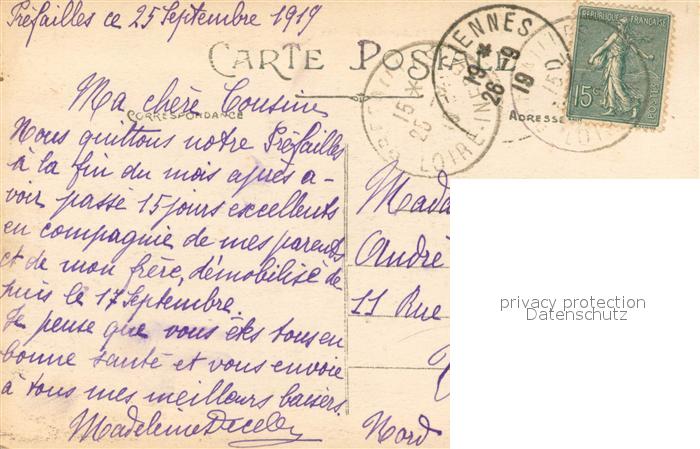 Préfailles ce 25 Septembre 1919
CARTE POSTALE
CORRESPONDANCE
ADRESSE
Ma chère Cousine
Nous quittons notre Préfailles
à la fin du mois après a-
voir passé 15 jours excellents
en compagnie de mes parents
et de mon frère, démobilisé de
puis le 17 Septembre.
Je pense que vous êtes tous en
bonne santé et vous envoie
à tous mes meilleurs baisers.
Madeleine
Mada
André
11 Rue
Nord
REPUBLIQUE FRANÇAISE
15c
POSTES
15 *
25
LOIRE-INF
IENNES
19 * 19
26
privacy protection
Datenschutz